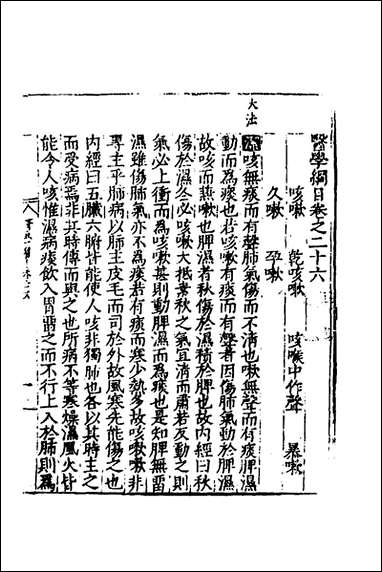 醫學綱目卷之二十六
咳嗽 乾咳嗽 咳喉中作聲 暴嗽
久嗽 孕嗽
大法
咳無痰而有聲肺氣傷而不清也嗽無聲而有痰脾濕
動而為痰也若咳嗽有痰而有聲者因傷肺氣動於脾濕
故咳而兼嗽也脾濕者秋傷於濕積於脾也故内經曰秋
傷於濕冬必咳嗽大抵素秋之氣宜清而肅若反動之則
氣必上衝而為咳嗽甚則動脾濕而為痰也是知脾無畱
濕雖傷肺氣亦不為痰若有痰而寒少熱多故咳嗽嗽非
專主乎肺病以肺主皮毛而司於外故風寒先能傷之也
内經曰五臟六腑皆能使人咳非獨肺也各以其時主之
而受病焉非其時傳而與之也所病不等寒燥濕風火皆
能令人咳惟濕病痰飲入胃畱之而不行上入於肺則為